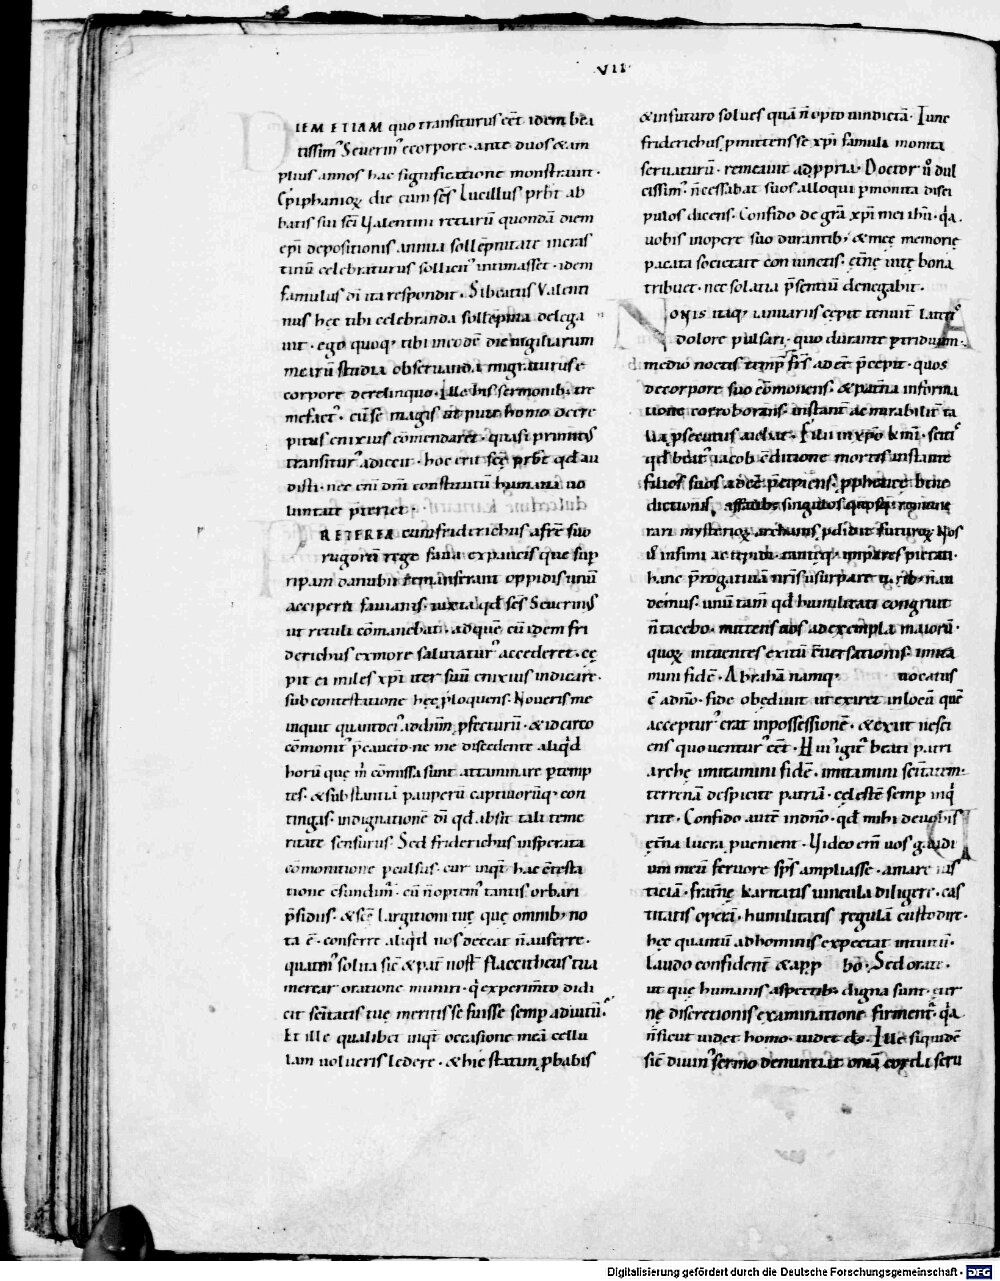 VII
DIEM ETIAM quo transiturus eēt idem bea
tissimꝰ Seuerinꝰ e corpore · ante duos & am
plius annos hac significatione monstrauit ·
Epiphaniorꝝ die cum sc̄s Lucillus prb̄r ab
batis sui sc̄i Valentini retiarū quondā diem
ep̄i depositionis annua sollēpnitate in cras
tinū celebraturus sollicitꝰ intimasset · idem
famulus dī ita respondit · Si beatus Valenti
nus hęc tibi celebranda sollēpnia delega
uit · ego quoqꝫ tibi in eodē die uigiliarum
mearū studia obseruanda migraturus e
corpore derelinquo · Ille his sermonibꝫ tre
mefactꝰ · cū se magis ut pute homo decre
pitus enixius cōmendaret · quasi primitꝰ
transiturꝰ adiecit · hoc erit sc̄ę prb̄r qd̄ au
disti · nec enī dn̄i constitutū humana uo
luntate pręteriet ·
PRETEREA cum friderichus a fr̄e suo
rugorū rege faua ex paucis quę sup̄
ripam danubii remanserant oppidis unū
acciperet fauianis · iuxta qd̄ sc̄s Seuerinꝰ
ut retuli cōmanebat · ad quē cū idem fri
derichus ex more salutaturꝰ accederet · cę
pit ei miles xp̄i iter suū enixius indicare ·
sub contestatione hęc p̄loquens · Noueris me
inquit quantociꝰ ad dn̄m p̄fecturū · & idcirco
cōmonitꝰ p̄caueto · ne me discedente aliqd̄
horū quę m̄ cōmissa sunt attaminare p̄temp
tes · & substantiā pauperū captiuorūqꝫ con
tingas · indignationē dī qd̄ absit tali teme
ritate sensurus · Sed friderichus insperata
cōmonitione p̄culsus · cur inqt hac cōtesta
tione cōfundimꝰ · cū n̄ optemꝰ tantis orbari
p̄sidiis · & sc̄ę largitioni tuę quę omnibꝫ no
ta ē · conferre aliqd̄ nos deceat n̄ auferre ·
quatinꝰ solita sic̄ & pat̄ nost̄ flaccitheus tua
mereat̄ oratione muniri · qͥ experimt̄o didi
cit sc̄itatis tuę meritis se fuisse semp̄ adiutū ·
Et ille qualibet inqt occasione meā cellu
lam uolueris ledere · & hic statim p̄babis
& in futuro solues quā n̄ opto uindictā · Tunc
friderichus p̄mittens se xp̄i famuli monita
seruaturū · remeauit ad p̄pria · Doctor u̇ dul
cissimꝰ n̄ cessabat suos alloqui p̄monita disci
pulos dicens · Confido de gr̄a xp̄i mei ih̄u · qͣ
uobis in opere suo durantibꝫ & meę memorię
pacata societate conuinctis · ęt̄nę uitę bona
tribuet · nec solatia p̄sentiū denegabit ·
NONIS itaqꝫ ianuariis cępit tenuit̄ lateriꝰ
dolore pulsari · quo durante p̄ triduum ·
medio noctis temp̄r fr̄s adeē p̄cepit · quos
de corpore suo cōmonens · & pat̄na informa
tione corroborans · instant̄ ac mirabilit̄ ta
lia p̄secutus aiebat · Filii in xp̄o k̄mi · scitꝰ
qd̄ beatꝰ iacob cōditione mortis instante
filios suos adeē p̄cipiens · p̄phetię bene
dictionis affatibꝫ singulos qͦsqꝫ remune
rari mysteriorꝝ archana p̄didit futurorꝝ · Nos
u̇ infimi ac tepidi · tantęqꝫ impares pietati ·
hanc p̄rogatiuā nr̄is usurpare uiribꝫ n̄ au
demus · unū tam̄ qd̄ humilitati congruit
n̄ tacebo · mittens uos ad exempla maiorū ·
quorꝝ intuentes exitū cōuersationis · imita
mini fidē · Abrahā namqꝫ uocatus
ē a dn̄o · fide obediuit ut exiret in locū quē
accepturꝰ erat in possessionē · & exiit nesci
ens quo uenturꝰ eēt · Huiꝰ igit̄ beati patri
archę imitamini fidē · imitamini sc̄itatem ·
terrenā despicite patriā · cęlestē semp̄ inqͥ
rite · Confido autē in dn̄o · qd̄ mihi de uobis
ęt̄na lucra p̄uenient · Video enī uos gaudi
um meū feruore sp̄s ampliasse · amare ius
ticiam · frat̄nę karitatis uincula diligere · cas
titatis operā · humilitatis regulā custodire ·
hęc quantū ad hominis expectat intuitū ·
laudo confident̄ & app bo · Sed orate ·
ut quę humanis aspectibꝫ digna sunt · ęter
nę discretionis examinatione firment̄ · qͣ
n̄ sicut uidet homo · uidet ds̄ · Ille siquidē
sic̄ diuinꝰ sermo denuntiat omā corda scru